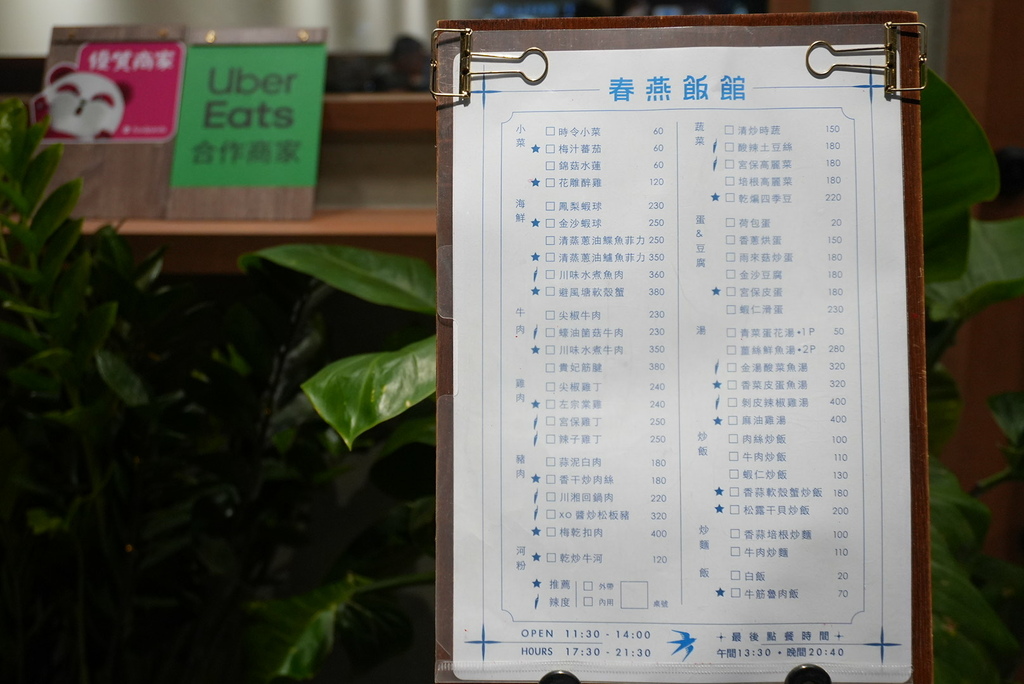 優質商家
Uber
Eats
合作商家
春燕飯館
小菜
時令小菜 60
梅汁蕃茄 60
錦菇水蓮 60
花雕醉雞 120
海鮮
鳳梨蝦球 230
金沙蝦球 250
清蒸蔥油鰈魚菲力 250
清蒸蔥油鱸魚菲力 350
川味水煮魚肉 360
避風塘軟殼蟹 380
牛肉
尖椒牛肉 230
蠔油菌菇牛肉 230
川味水煮牛肉 350
貴妃筋腱 380
雞肉
尖椒雞丁 240
左宗棠雞 240
宮保雞丁 250
辣子雞丁 250
豬肉
蒜泥白肉 180
香干炒肉絲 180
川湘回鍋肉 220
xo醬炒松板豬 320
梅乾扣肉 400
河粉
乾炒牛河 120
推薦
辣度
外帶
內用
桌號
蔬菜
清炒時蔬 150
酸辣土豆絲 180
宮保高麗菜 180
培根高麗菜 180
乾煸四季豆 220
蛋&豆腐
荷包蛋 20
香蔥烘蛋 150
雨來菇炒蛋 180
金沙豆腐 180
宮保皮蛋 180
蝦仁滑蛋 230
湯
青菜蛋花湯•1P 50
薑絲鮮魚湯•2P 280
金湯酸菜魚湯 320
香菜皮蛋魚湯 320
剝皮辣椒雞湯 400
麻油雞湯 400
炒飯
肉絲炒飯 100
牛肉炒飯 110
蝦仁炒飯 130
香蒜軟殼蟹炒飯 180
松露干貝炒飯 200
炒麵
香蒜培根炒麵 100
牛肉炒麵 110
飯
白飯 20
牛筋魯肉飯 70
OPEN 11:30 - 14:00
HOURS 17:30 - 21:30
最後點餐時間
午間13:30•晚間20:40